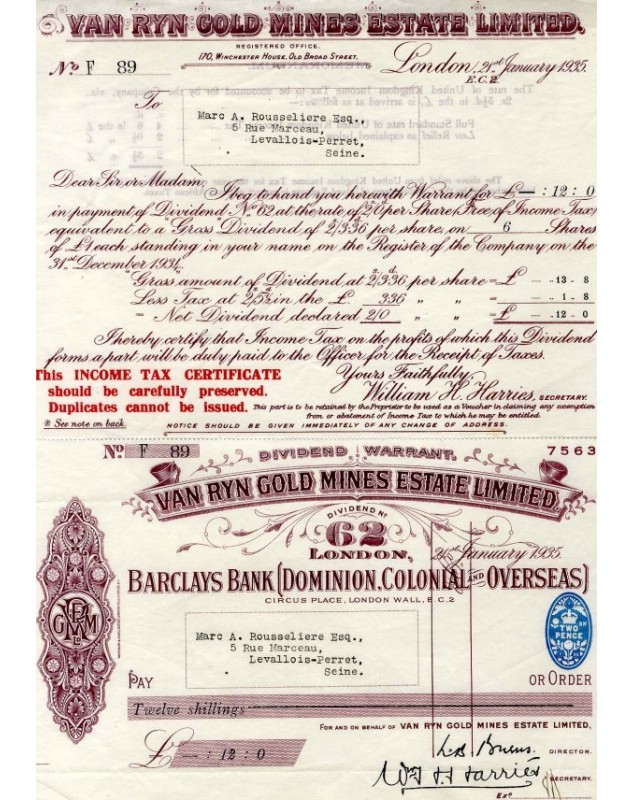 VAN RYN GOLD MINES ESTATE LIMITED.
REGISTERED OFFICE.
170, WINCHESTER HOUSE, OLD BROAD STREET,
No F 89
London, 21st January 1935.
E.C.2.
To
Marc A. Rousseliere Esq.,
5 Rue Marceau,
Levallois-Perret,
Seine.
Dear Sir, or Madam,
I beg to hand you herewith Warrant for £ — : 12 : 0
in payment of Dividend No 62 at the rate of 2/0 per Share, (Free, of Income Tax)
equivalent to a Gross Dividend of 2/3·36 per share, on 6 Shares
of £1 each standing in your name on the Register of the Company on the
31st December 1934.
Gross amount of Dividend at 2/3·36 per share = £ — .. 13 - 8
Less Tax at in the £ 3·36 " " = — .. 1 - 8
= Net Dividend declared 2/0 " " = £ — .. 12 - 0
I hereby certify that Income Tax on the profits of which this Dividend
forms a part will be duly paid to the Officer for the Receipt of Taxes.
This INCOME TAX CERTIFICATE
should be carefully preserved.
Duplicates cannot be issued.
Yours Faithfully,
William H. Harries, SECRETARY.
This part is to be retained by the Proprietor to be used as a Voucher in claiming any exemption
from or abatement of Income Tax to which he may be entitled.
* See note on back.
NOTICE SHOULD BE GIVEN IMMEDIATELY OF ANY CHANGE OF ADDRESS.
No F 89
DIVIDEND WARRANT.
7563
VAN RYN GOLD MINES ESTATE LIMITED.
DIVIDEND No
62
LONDON,
21st January 1935.
BARCLAYS BANK (DOMINION, COLONIAL AND OVERSEAS)
CIRCUS PLACE, LONDON WALL, E.C.2
Marc A. Rousseliere Esq.,
5 Rue Marceau,
Levallois-Perret,
Seine.
TWO
PENCE
PAY
OR ORDER
Twelve shillings
FOR AND ON BEHALF OF VAN RYN GOLD MINES ESTATE LIMITED,
£ — : 12 : 0
L.B. Burns.
DIRECTOR.
Wm H Harries
SECRETARY.
Exd